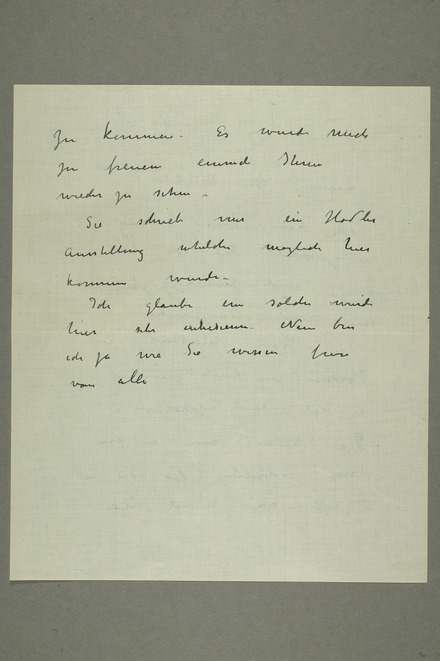 zu kommen. Es wurde mich
zu freuen einmal Ihnen
wieder zu sehen.
Sie schrieb mir ein Hodler
Ausstellung möglich hier
kommen wurde.
Ich glaube ein solche wurde
hier sehr interessieren. Nun bin
ich ja wie Sie wissen frei
von alle